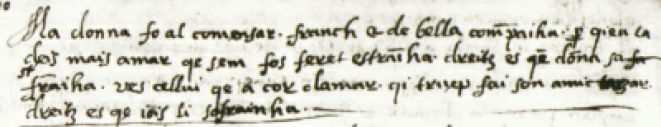 Ma donna fo al comensar. franch e de bella companiha. per qieu la
deis mais amar qe sem fos feret estraniha. dreitz es qe donna sa
franiha. ves cellui qe a cor clamar. qi truep fai son amic
dreitz es qe iois li sofrainha.